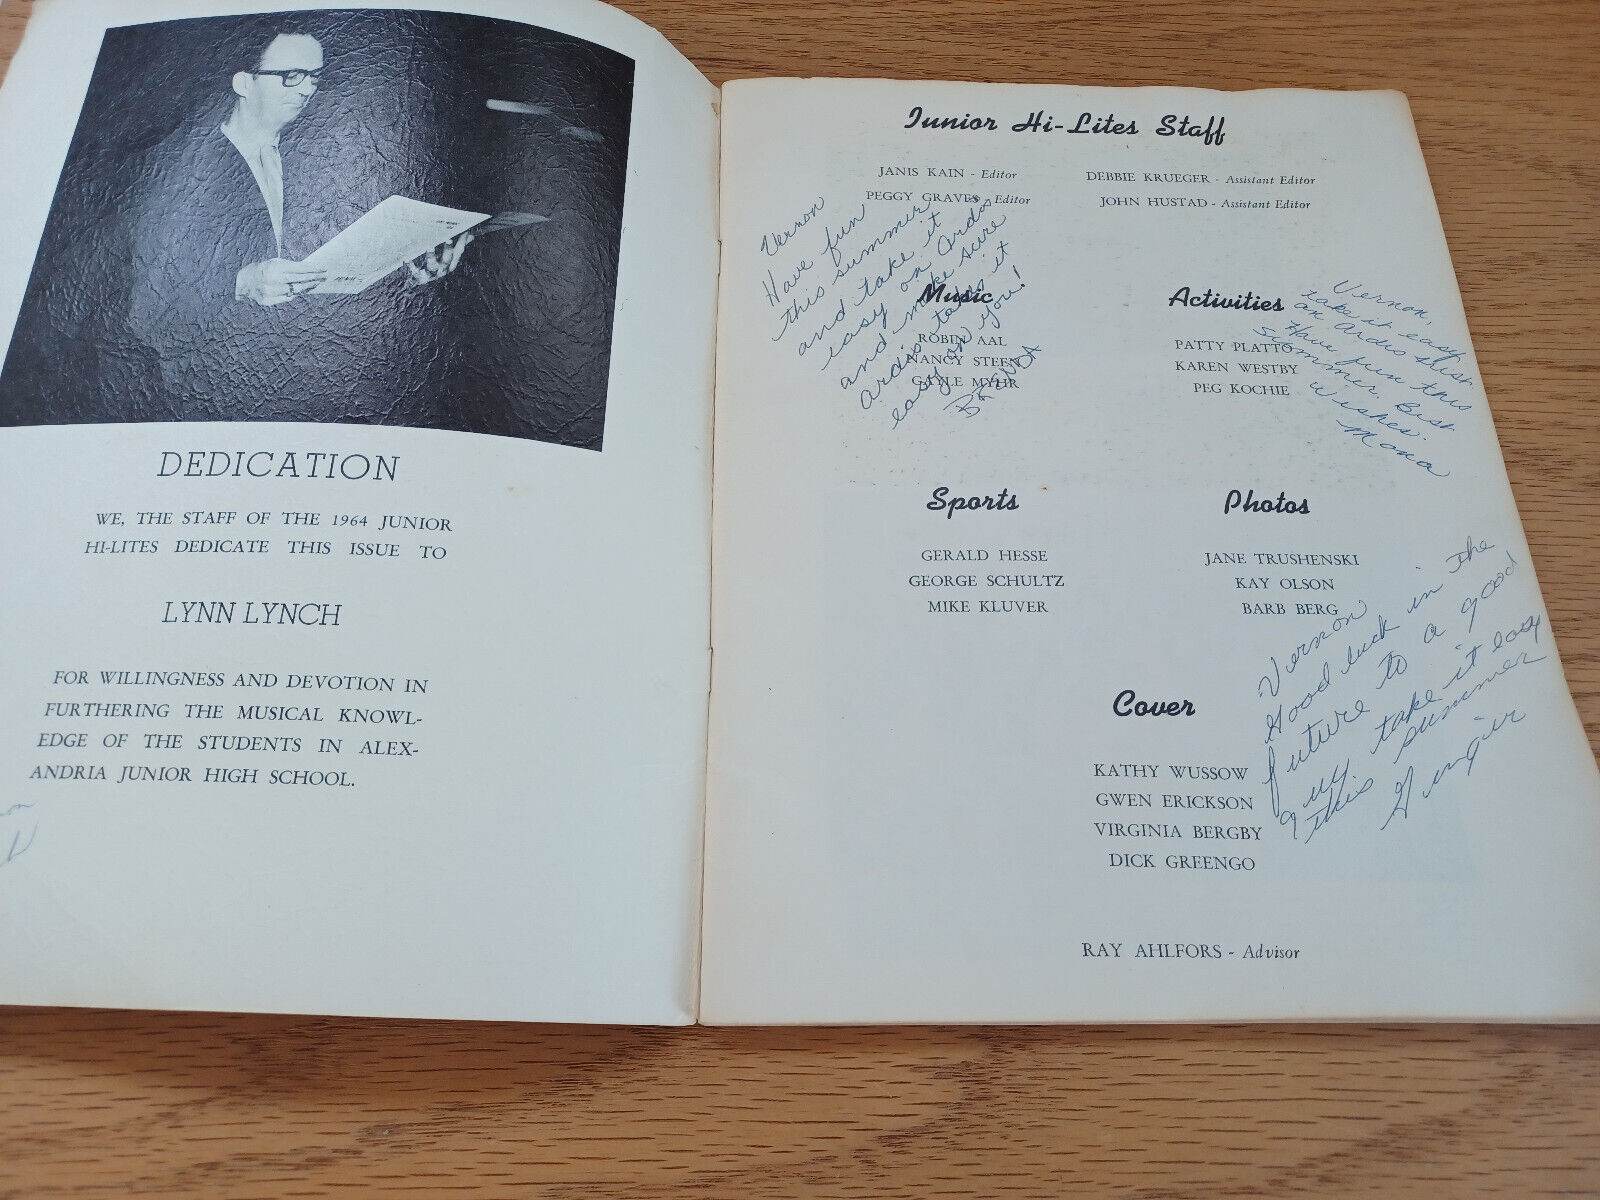 DEDICATION
WE, THE STAFF OF THE 1964 JUNIOR
HI-LITES DEDICATE THIS ISSUE TO
LYNN LYNCH
FOR WILLINGNESS AND DEVOTION IN
FURTHERING THE MUSICAL KNOWL-
EDGE OF THE STUDENTS IN ALEX-
ANDRIA JUNIOR HIGH SCHOOL.
Junior Hi-Lites Staff
JANIS KAIN - Editor
PEGGY GRAVES - Editor
DEBBIE KRUEGER - Assistant Editor
JOHN HUSTAD - Assistant Editor
Vernon
Have fun
this summer
and take it
easy on Ardis
and make sure
Ardis takes it
easy on you!
BRENDA
Music
ROBIN AAL
NANCY STEEN
GAYLE MYHR
Activities
PATTY PLATTO
KAREN WESTBY
PEG KOCHIE
Vernon,
take it easy
on Ardis
Have fun this
summer. Best
wishes.
Mona
Sports
GERALD HESSE
GEORGE SCHULTZ
MIKE KLUVER
Photos
JANE TRUSHENSKI
KAY OLSON
BARB BERG
Vernon
Good luck in the
future to a good
guy take it easy
this summer
Ginger
Cover
KATHY WUSSOW
GWEN ERICKSON
VIRGINIA BERGBY
DICK GREENGO
RAY AHLFORS - Advisor